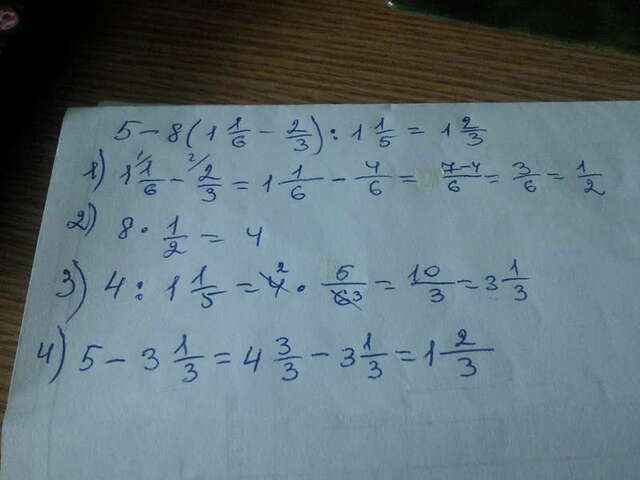 5 - 8 (1 1/6 - 2/3) : 1 1/5 = 1 2/3
1) 1 1/6 - 2/3 = 1 1/6 - 4/6 = 7-4/6 = 3/6 = 1/2
2) 8 · 1/2 = 4
3) 4 : 1 1/5 = 4 2 · 5/6 3 = 10/3 = 3 1/3
4) 5 - 3 1/3 = 4 3/3 - 3 1/3 = 1 2/3